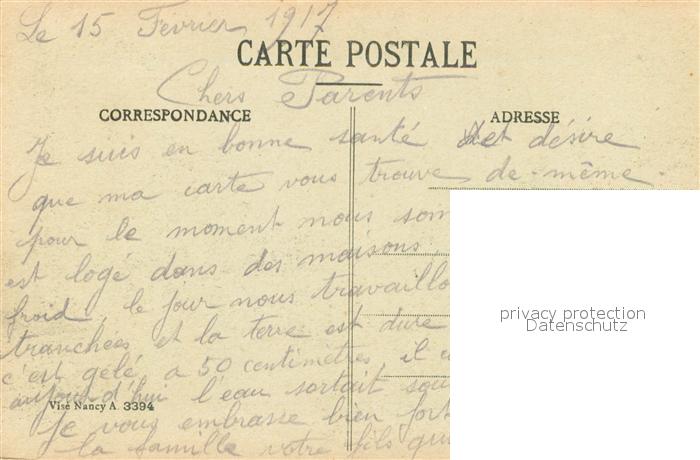 Le 15 Fevrier 1917
CARTE POSTALE
Chers Parents
CORRESPONDANCE
ADRESSE
Je suis en bonne santé et désire
que ma carte vous trouve de-même.
pour le moment nous som
est logé dans des maisons,
froid, le jour nous travaillo
tranchées et la terre est dure
c'est gelé a 50 centimètres il
aujourd'hui l'eau sortait sou
Visé Nancy A. 3394
Je vous embrasse bien fort
la famille votre fils qui
privacy protection
Datenschutz